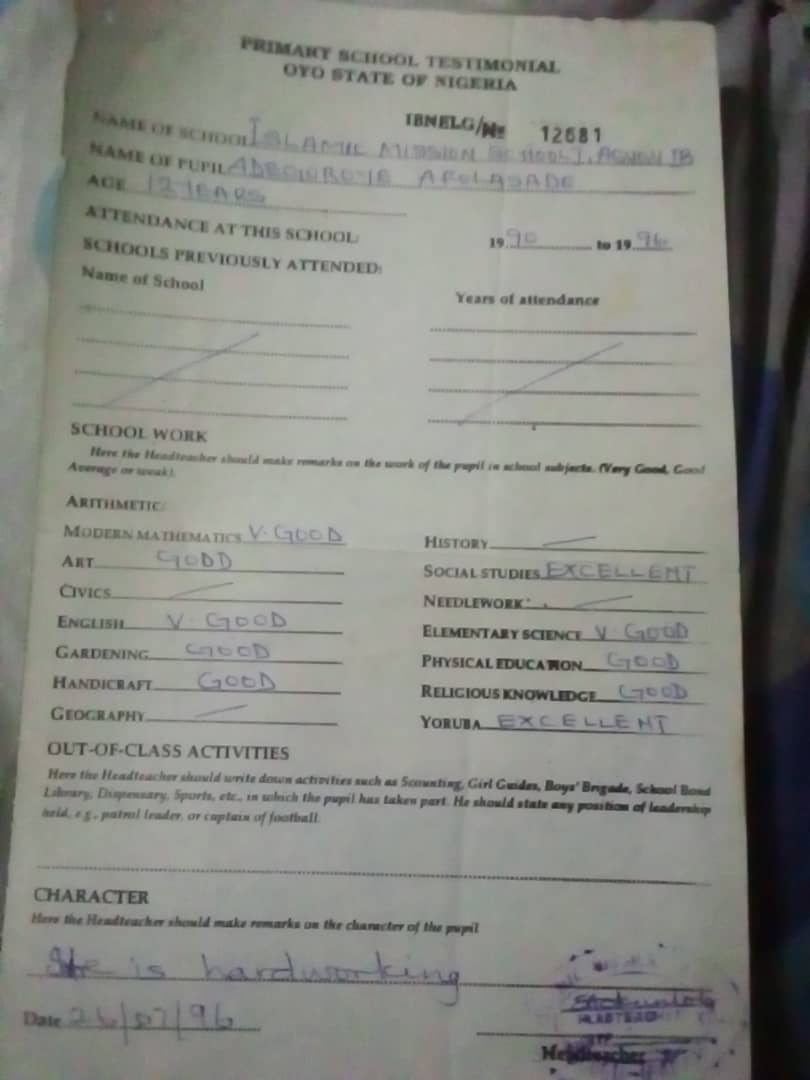 PRIMARY SCHOOL TESTIMONIAL
OYO STATE OF NIGERIA
IBNELG/No 12681
NAME OF SCHOOL ISLAMIC MISSION SCHOOL I, IB
NAME OF PUPIL AFOLASADE
AGE 12 YEARS
ATTENDANCE AT THIS SCHOOL: 1990 to 1996
SCHOOLS PREVIOUSLY ATTENDED:
Name of School Years of attendance
SCHOOL WORK
Here the Headteacher should make remarks on the work of the pupil in school subjects. (Very Good, Good
Average or weak).
ARITHMETIC:
MODERN MATHEMATICS V. GOOD HISTORY
ART GOOD SOCIAL STUDIES EXCELLENT
CIVICS NEEDLEWORK
ENGLISH V. GOOD ELEMENTARY SCIENCE V GOOD
GARDENING GOOD PHYSICAL EDUCATION GOOD
HANDICRAFT GOOD RELIGIOUS KNOWLEDGE GOOD
GEOGRAPHY YORUBA EXCELLENT
OUT-OF-CLASS ACTIVITIES
Here the Headteacher should write down activities such as Scounting, Girl Guides, Boys' Brigade, School Bond
Library, Dispensary, Sports, etc., in which the pupil has taken part. He should state any position of leadership
held, e.g., patrol leader, or captain of football.
CHARACTER
Here the Headteacher should make remarks on the character of the pupil
She is hardworking
Date 26/07/96
Headteacher